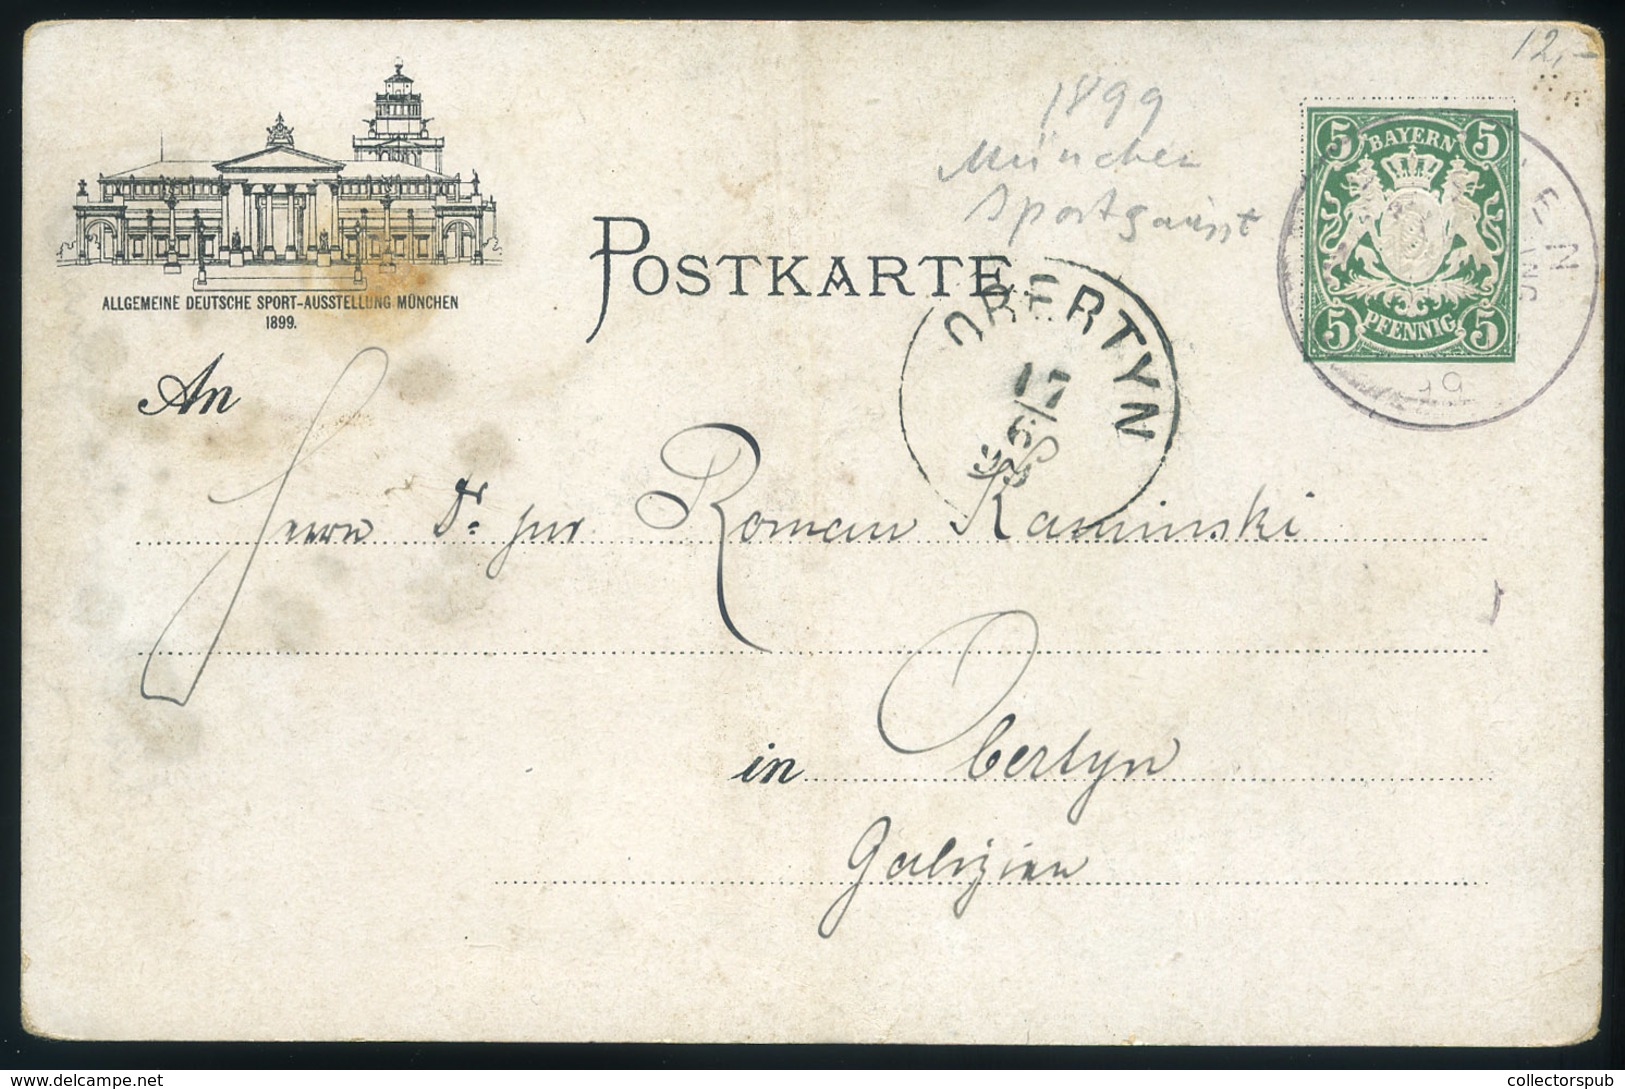 12,-
1899
München
Sport
5 BAYERN 5
5 PFENNIG 5
ALLGEMEINE DEUTSCHE SPORT-AUSSTELLUNG MÜNCHEN
1899.
POSTKARTE
OBERTYN
An
Herrn Dr jur Roman Kaminski
in Obertyn
Galizien
collectorspub